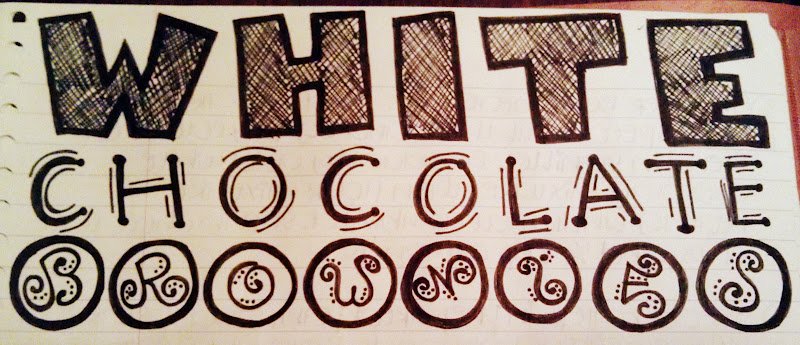 WHITE
CHOCOLATE
BROWNiES